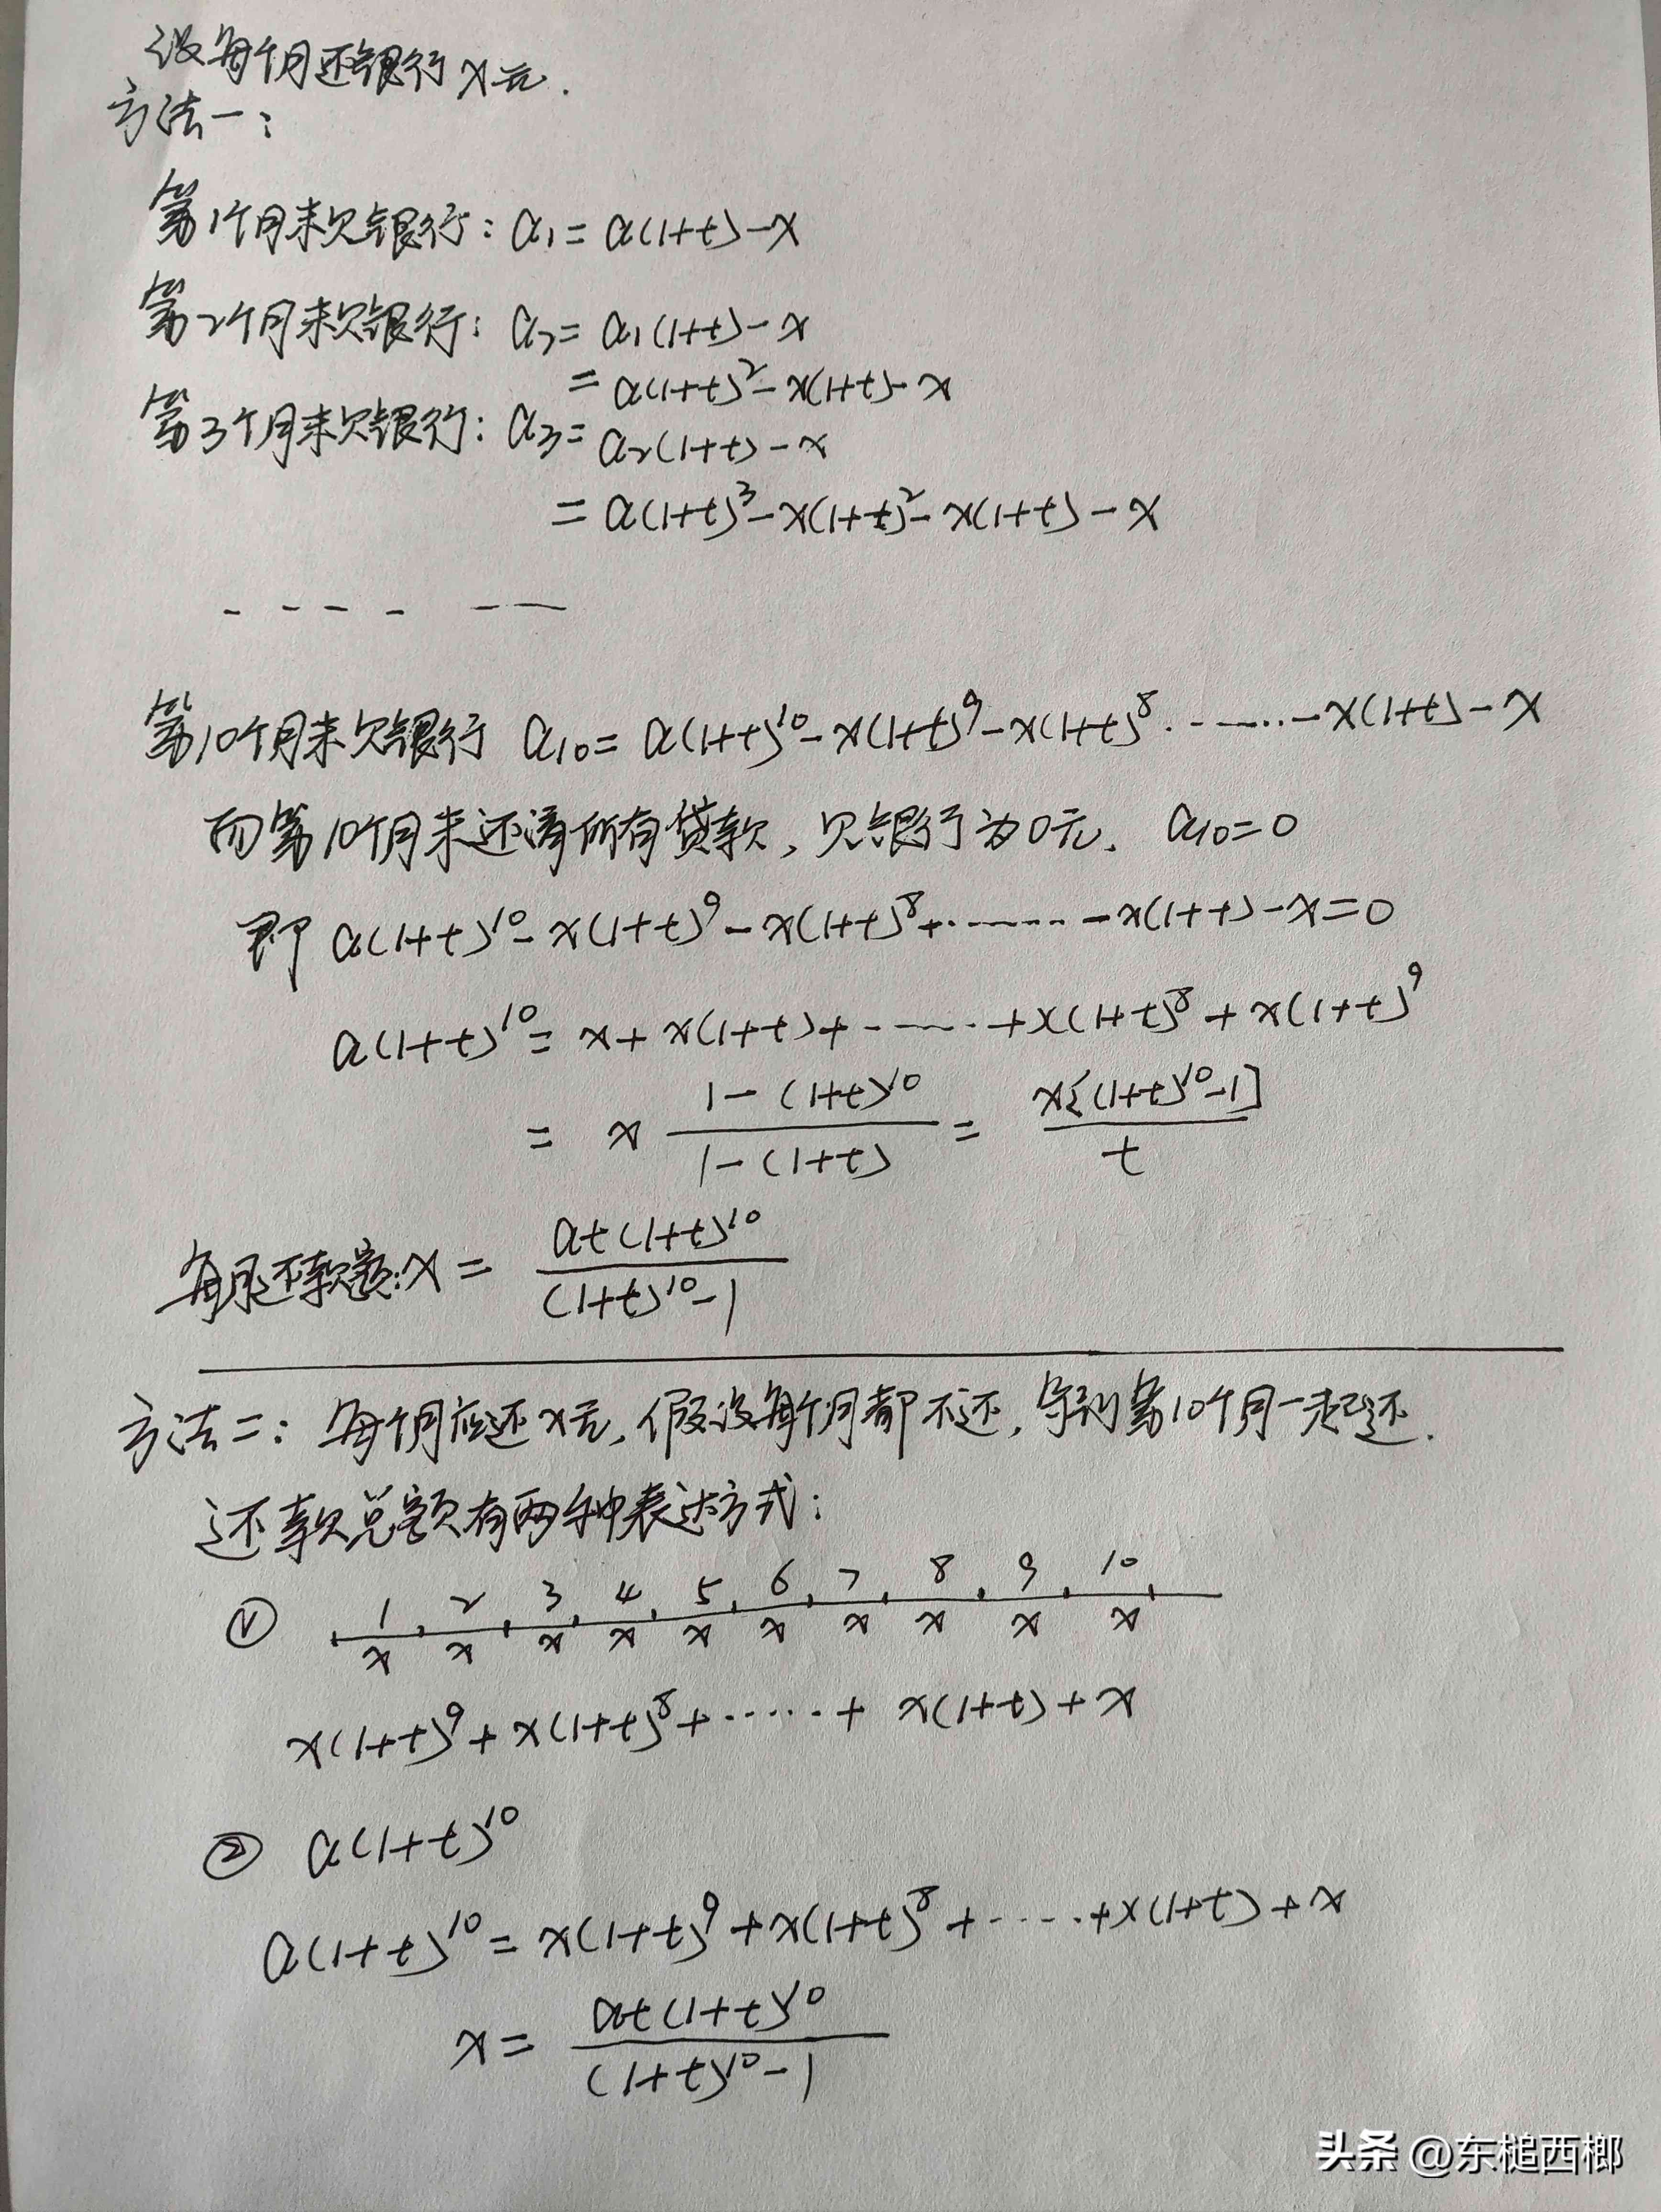 设每个月还银行x元.
方法一:
第1个月末欠银行: a₁=a(1+t)-x
第2个月末欠银行: a₂=a₁(1+t)-x
=a(1+t)²-x(1+t)-x
第3个月末欠银行: a₃=a₂(1+t)-x
=a(1+t)³-x(1+t)²-x(1+t)-x
- - - - - —
第10个月末欠银行 a₁₀=a(1+t)¹⁰-x(1+t)⁹-x(1+t)⁸·-—···-x(1+t)-x
而第10个月末还清所有贷款, 欠银行为0元. a₁₀=0
即 a(1+t)¹⁰-x(1+t)⁹-x(1+t)⁸+······-x(1+t)-x=0
a(1+t)¹⁰=x+x(1+t)+······+x(1+t)⁸+x(1+t)⁹
= x (1-(1+t)¹⁰)/(1-(1+t)) = x[(1+t)¹⁰-1]/t
每月还款额:x= at(1+t)¹⁰/((1+t)¹⁰-1)
方法二: 每个月应还x元, 假设每个月都不还, 等到第10个月一起还.
还款总额有两种表达方式:
① 1 2 3 4 5 6 7 8 9 10
x x x x x x x x x x
x(1+t)⁹+x(1+t)⁸+······+x(1+t)+x
② a(1+t)¹⁰
a(1+t)¹⁰=x(1+t)⁹+x(1+t)⁸+·····+x(1+t)+x
x= at(1+t)¹⁰/((1+t)¹⁰-1)
头条 @东槌西榔